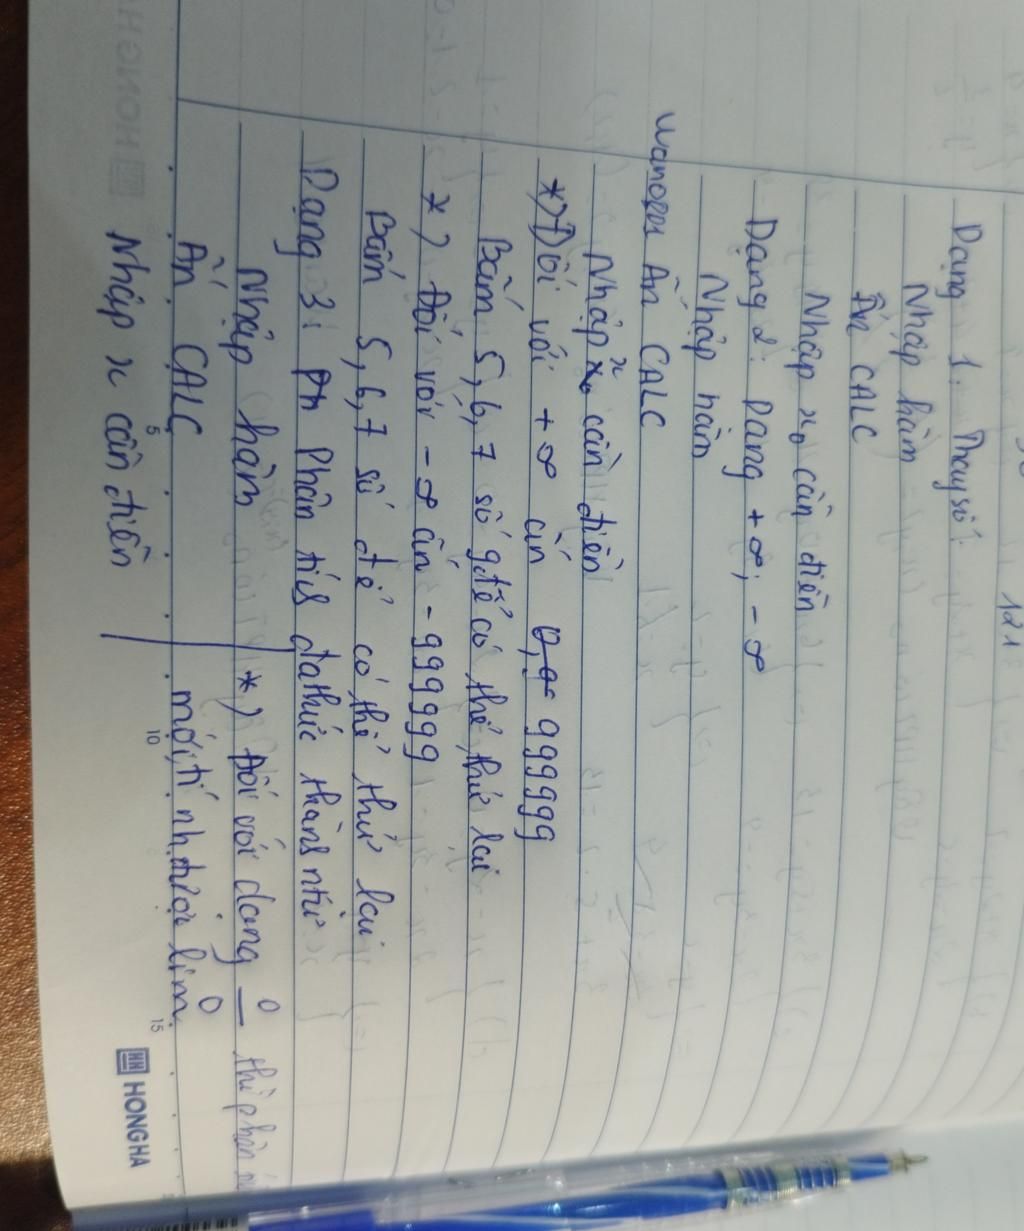 Dạng 1: Thay số:
Nhập hàm
Ấn CALC
Nhập x₀ cần điền
Dạng 2: Dạng +∞; -∞
Nhập hàm
Ấn CALC
Nhập x cần điền
*) Đối với +∞ ấn 999999
Bấm 5, 6, 7 số 9 để có thể thử lại
*) Đối với -∞ ấn -999999
Bấm 5, 6, 7 số để có thể thử lại
Dạng 3: Phân tích đa thức thành nhân tử
Nhập hàm
*) Đối với dạng 0/0 thì phân
Ấn CALC
mới tính được lim
Nhập x cần điền
5
10
15
HONG HA
121